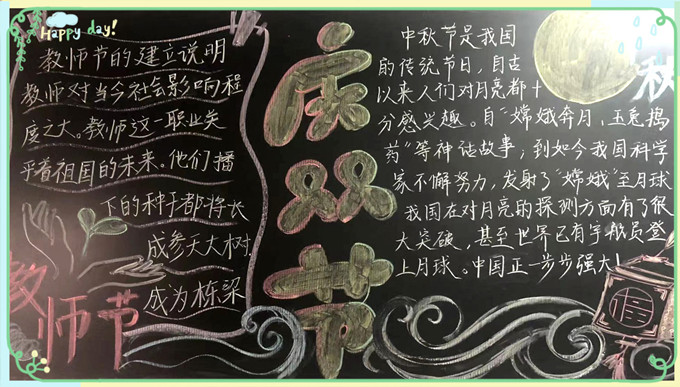 Happy day!
教师节的建立说明
教师对当今社会影响程
度之大。教师这一职业关
乎着祖国的未来。他们播
下的种子都将长
成参天大树，
成为栋梁
教师节
庆双节
中秋节是我国
的传统节日，自古
以来人们对月亮都十
分感兴趣。自“嫦娥奔月，玉兔捣
药”等神话故事，到如今我国科学
家不懈努力，发射了“嫦娥”至月球
我国在对月亮的探测方面有了很
大突破，甚至世界已有宇航员登
上月球。中国正一步步强大！
秋
福